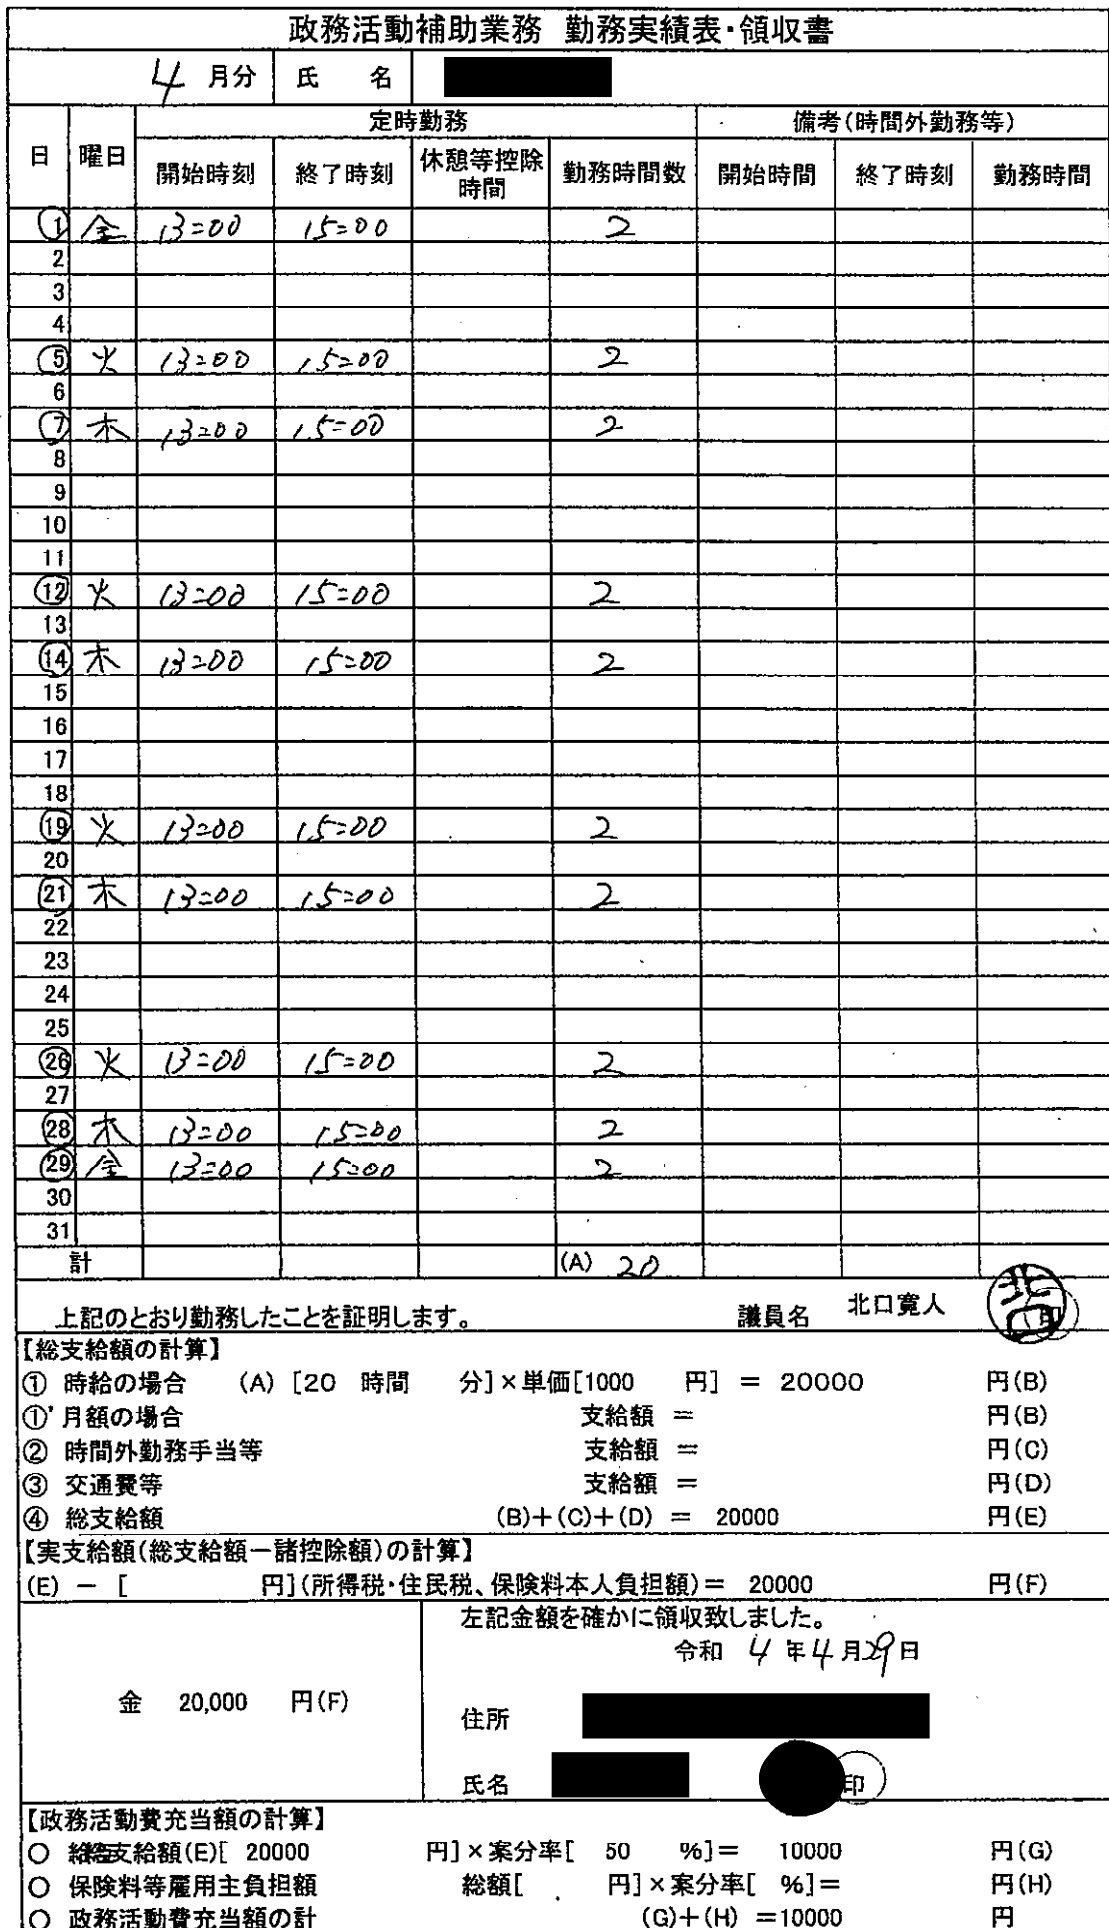 政務活動補助業務 勤務実績表・領収書
4 月分 氏 名
日 曜日 定時勤務 備考(時間外勤務等)
開始時刻 終了時刻 休憩等控除時間 勤務時間数 開始時間 終了時刻 勤務時間
① 金 13=00 15=00 2
2
3
4
⑤ 火 13=00 15=00 2
6
⑦ 木 13=00 15=00 2
8
9
10
11
⑫ 火 13=00 15=00 2
13
⑭ 木 13=00 15=00 2
15
16
17
18
⑲ 火 13=00 15=00 2
20
㉑ 木 13=00 15=00 2
22
23
24
25
㉖ 火 13=00 15=00 2
27
㉘ 木 13=00 15=00 2
㉙ 金 13=00 15=00 2
30
31
計 (A) 20
上記のとおり勤務したことを証明します。 議員名 北口寛人 北口
【総支給額の計算】
① 時給の場合 (A) [20 時間 分]×単価[1000 円] = 20000 円(B)
①'月額の場合 支給額 = 円(B)
② 時間外勤務手当等 支給額 = 円(C)
③ 交通費等 支給額 = 円(D)
④ 総支給額 (B)+(C)+(D) = 20000 円(E)
【実支給額(総支給額-諸控除額)の計算】
(E) - [ 円](所得税・住民税、保険料本人負担額)= 20000 円(F)
左記金額を確かに領収致しました。
令和 4 年4月29日
金 20,000 円(F)
住所
氏名 印
【政務活動費充当額の計算】
○ 総支給額(E)[ 20000 円]×案分率[ 50 %]= 10000 円(G)
○ 保険料等雇用主負担額 総額[ 円]×案分率[ %]= 円(H)
○ 政務活動費充当額の計 (G)+(H) =10000 円